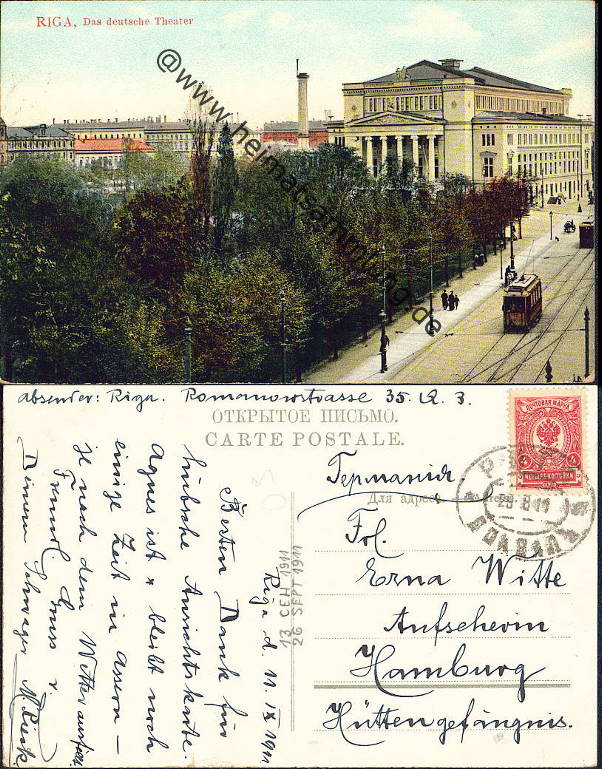 RIGA, Das deutsche Theater
@www.heimatsammlung.de
Absender: Riga. Romanowstrasse 35. 3.
ОТКРЫТОЕ ПИСЬМО.
CARTE POSTALE.
ПОЧТОВАЯ МАРКА
Германія
Для адреса
Frl.
Erna Witte
Aufseherin
Hamburg
Hüttengefängnis.
13 СЕН 1911
26 SEPT 1911
Riga d. 11 IX 1911
Besten Dank für
hübsche Ansichtskarte
Agnes ist u bleibt noch
einige Zeit in Assern –
je nach dem Wetter
Gruss v.
Deinem Schwager